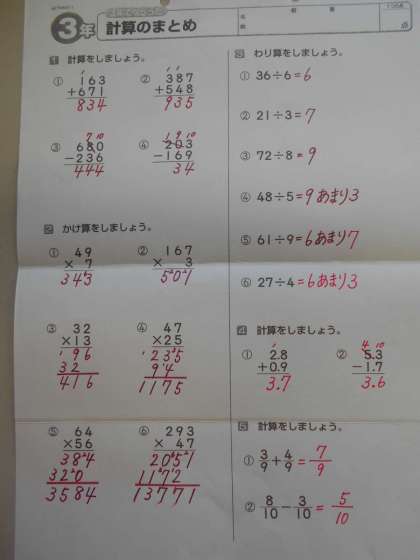 3年 計算のまとめ
100点
1 計算をしましょう。
① 163 + 671 834
② 387 + 548 935
③ 680 - 236 444
④ 203 - 169 34
2 かけ算をしましょう。
① 49 × 7 343
② 167 × 3 501
③ 32 × 13 96 32 416
④ 47 × 25 235 94 1175
⑤ 64 × 56 384 320 3584
⑥ 293 × 47 2051 1172 13771
3 わり算をしましょう。
① 36÷6=6
② 21÷3=7
③ 72÷8=9
④ 48÷5=9あまり3
⑤ 61÷9=6あまり7
⑥ 27÷4=6あまり3
4 計算をしましょう。
① 2.8 + 0.9 3.7
② 5.3 - 1.7 3.6
5 計算をしましょう。
① 3/9 + 4/9 = 7/9
② 8/10 - 3/10 = 5/10